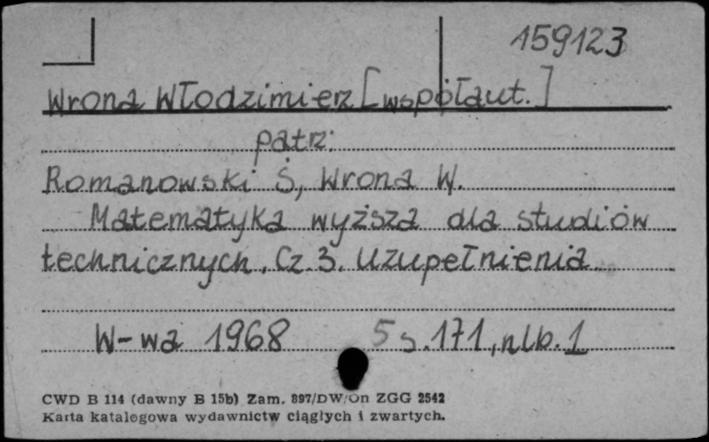 159123
Wrona Włodzimierz [współaut.]
patrz:
Romanowski S, Wrona W.
Matematyka wyższa dla studiów
technicznych. Cz. 3. Uzupełnienia
W-wa 1968 5 s. 171, nlb. 1
CWD B 114 (dawny B 15b) Zam. 897/DW/On ZGG 2542
Karta katalogowa wydawnictw ciągłych i zwartych.